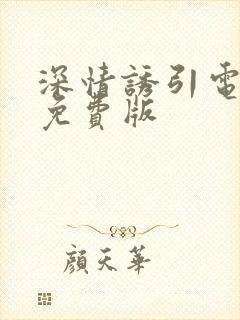 深情誘引電
免費版
顏天華